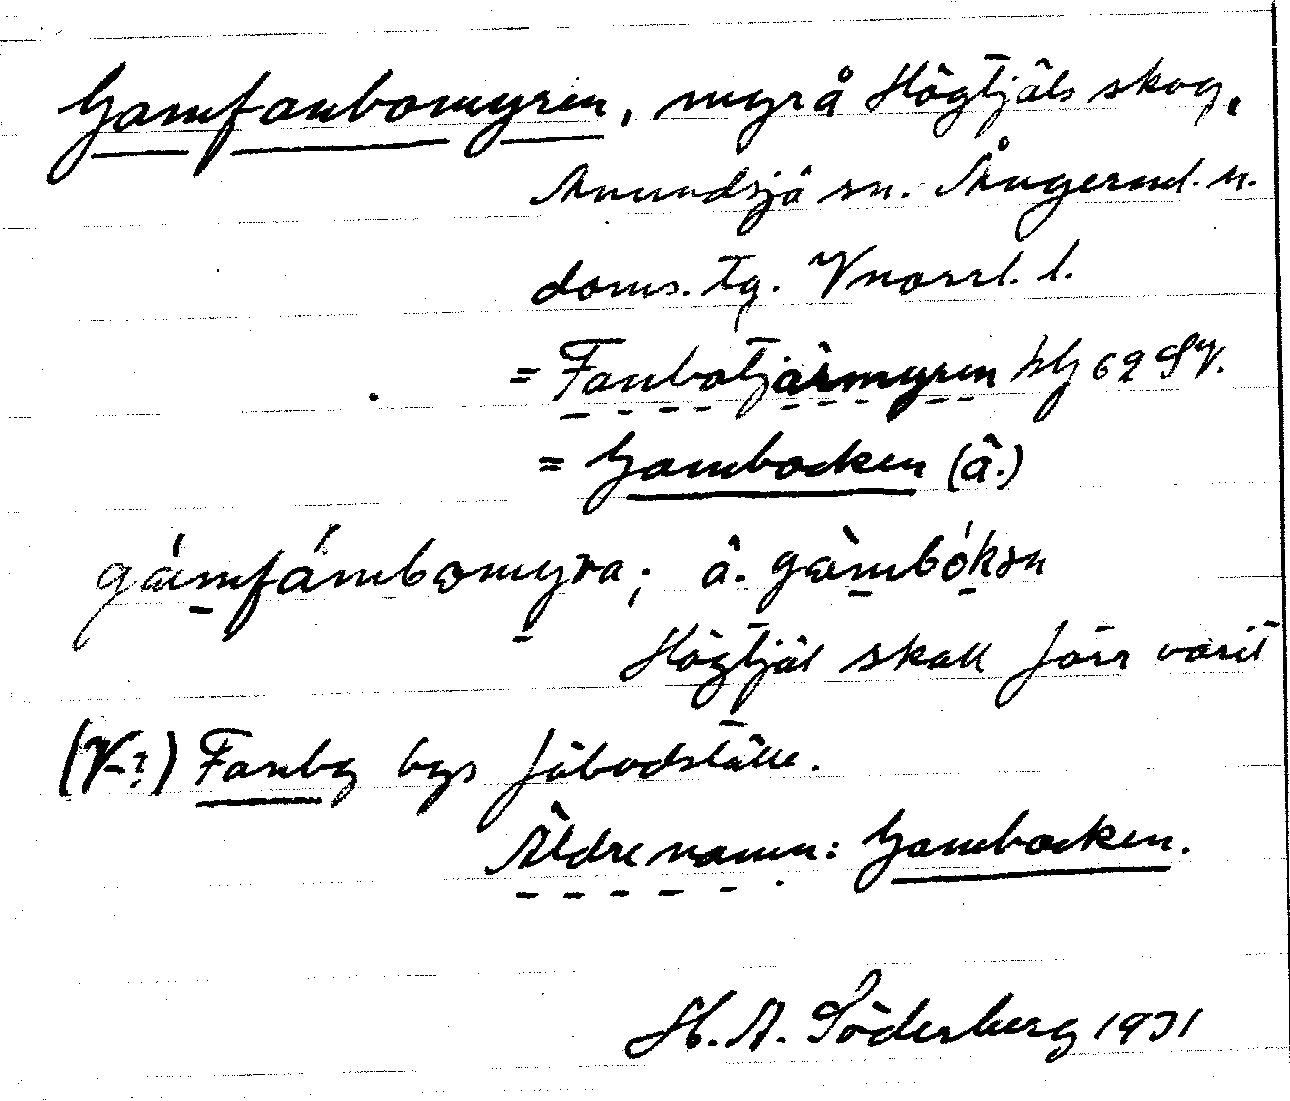 Gamfanbomyren, myr å Högtjäls skog,
Anundsjö sn. Ångerml. n.
doms. tg. Vnorrl. l.
= Fanbotjärmyren blg 62 SV.
= Gambocken (å.)
gámfámbomyra; å. gàmbóksn
Högtjäl skall förr varit
(V-?) Fanby bys fäbodställe.
Äldre namn: Gambocken.
H. A. Söderberg 1931